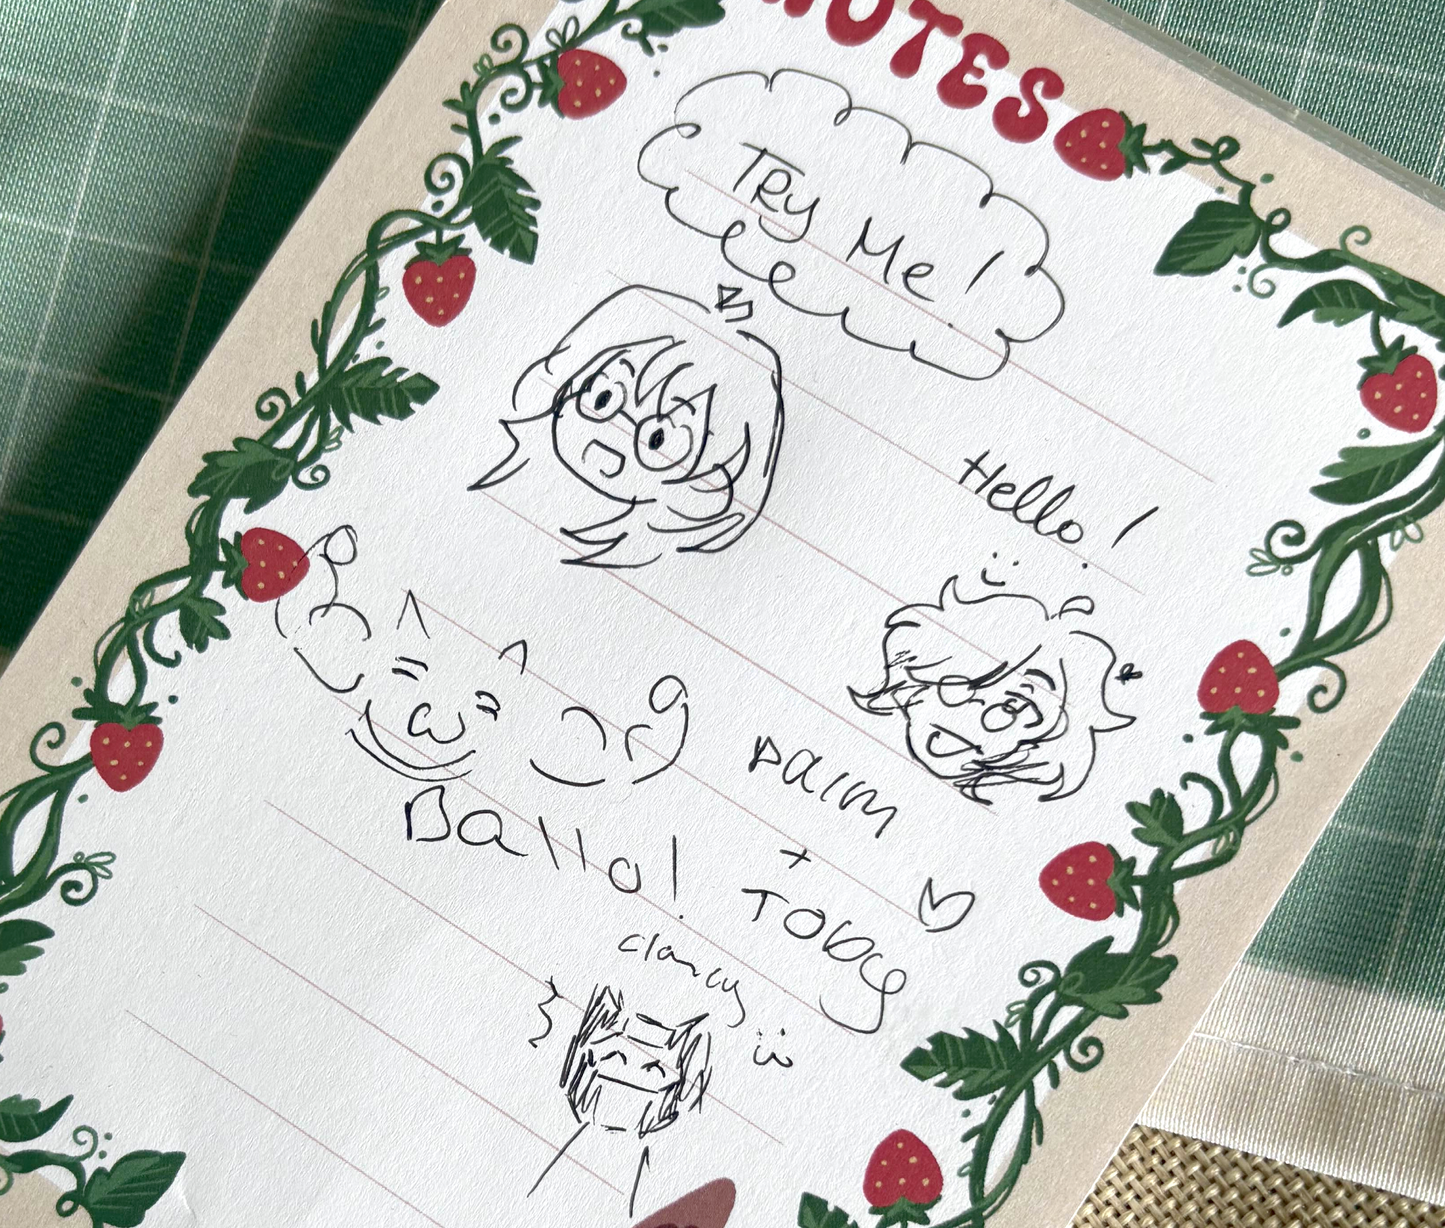 NOTES
TRy Me!
Hello!
Daim
+
TOBY
Ballo!
clancy